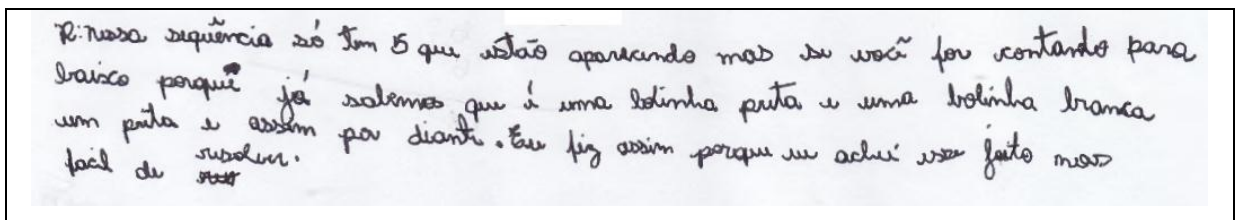 R: nessa sequência só tem 5 que estão aparecendo mas se você for contando para
baixo porquê já sabemos que é uma bolinha preta e uma bolinha branca
um preta e assim por diante. Eu fiz assim porque eu achei esse jeito mas
facil de resolver.